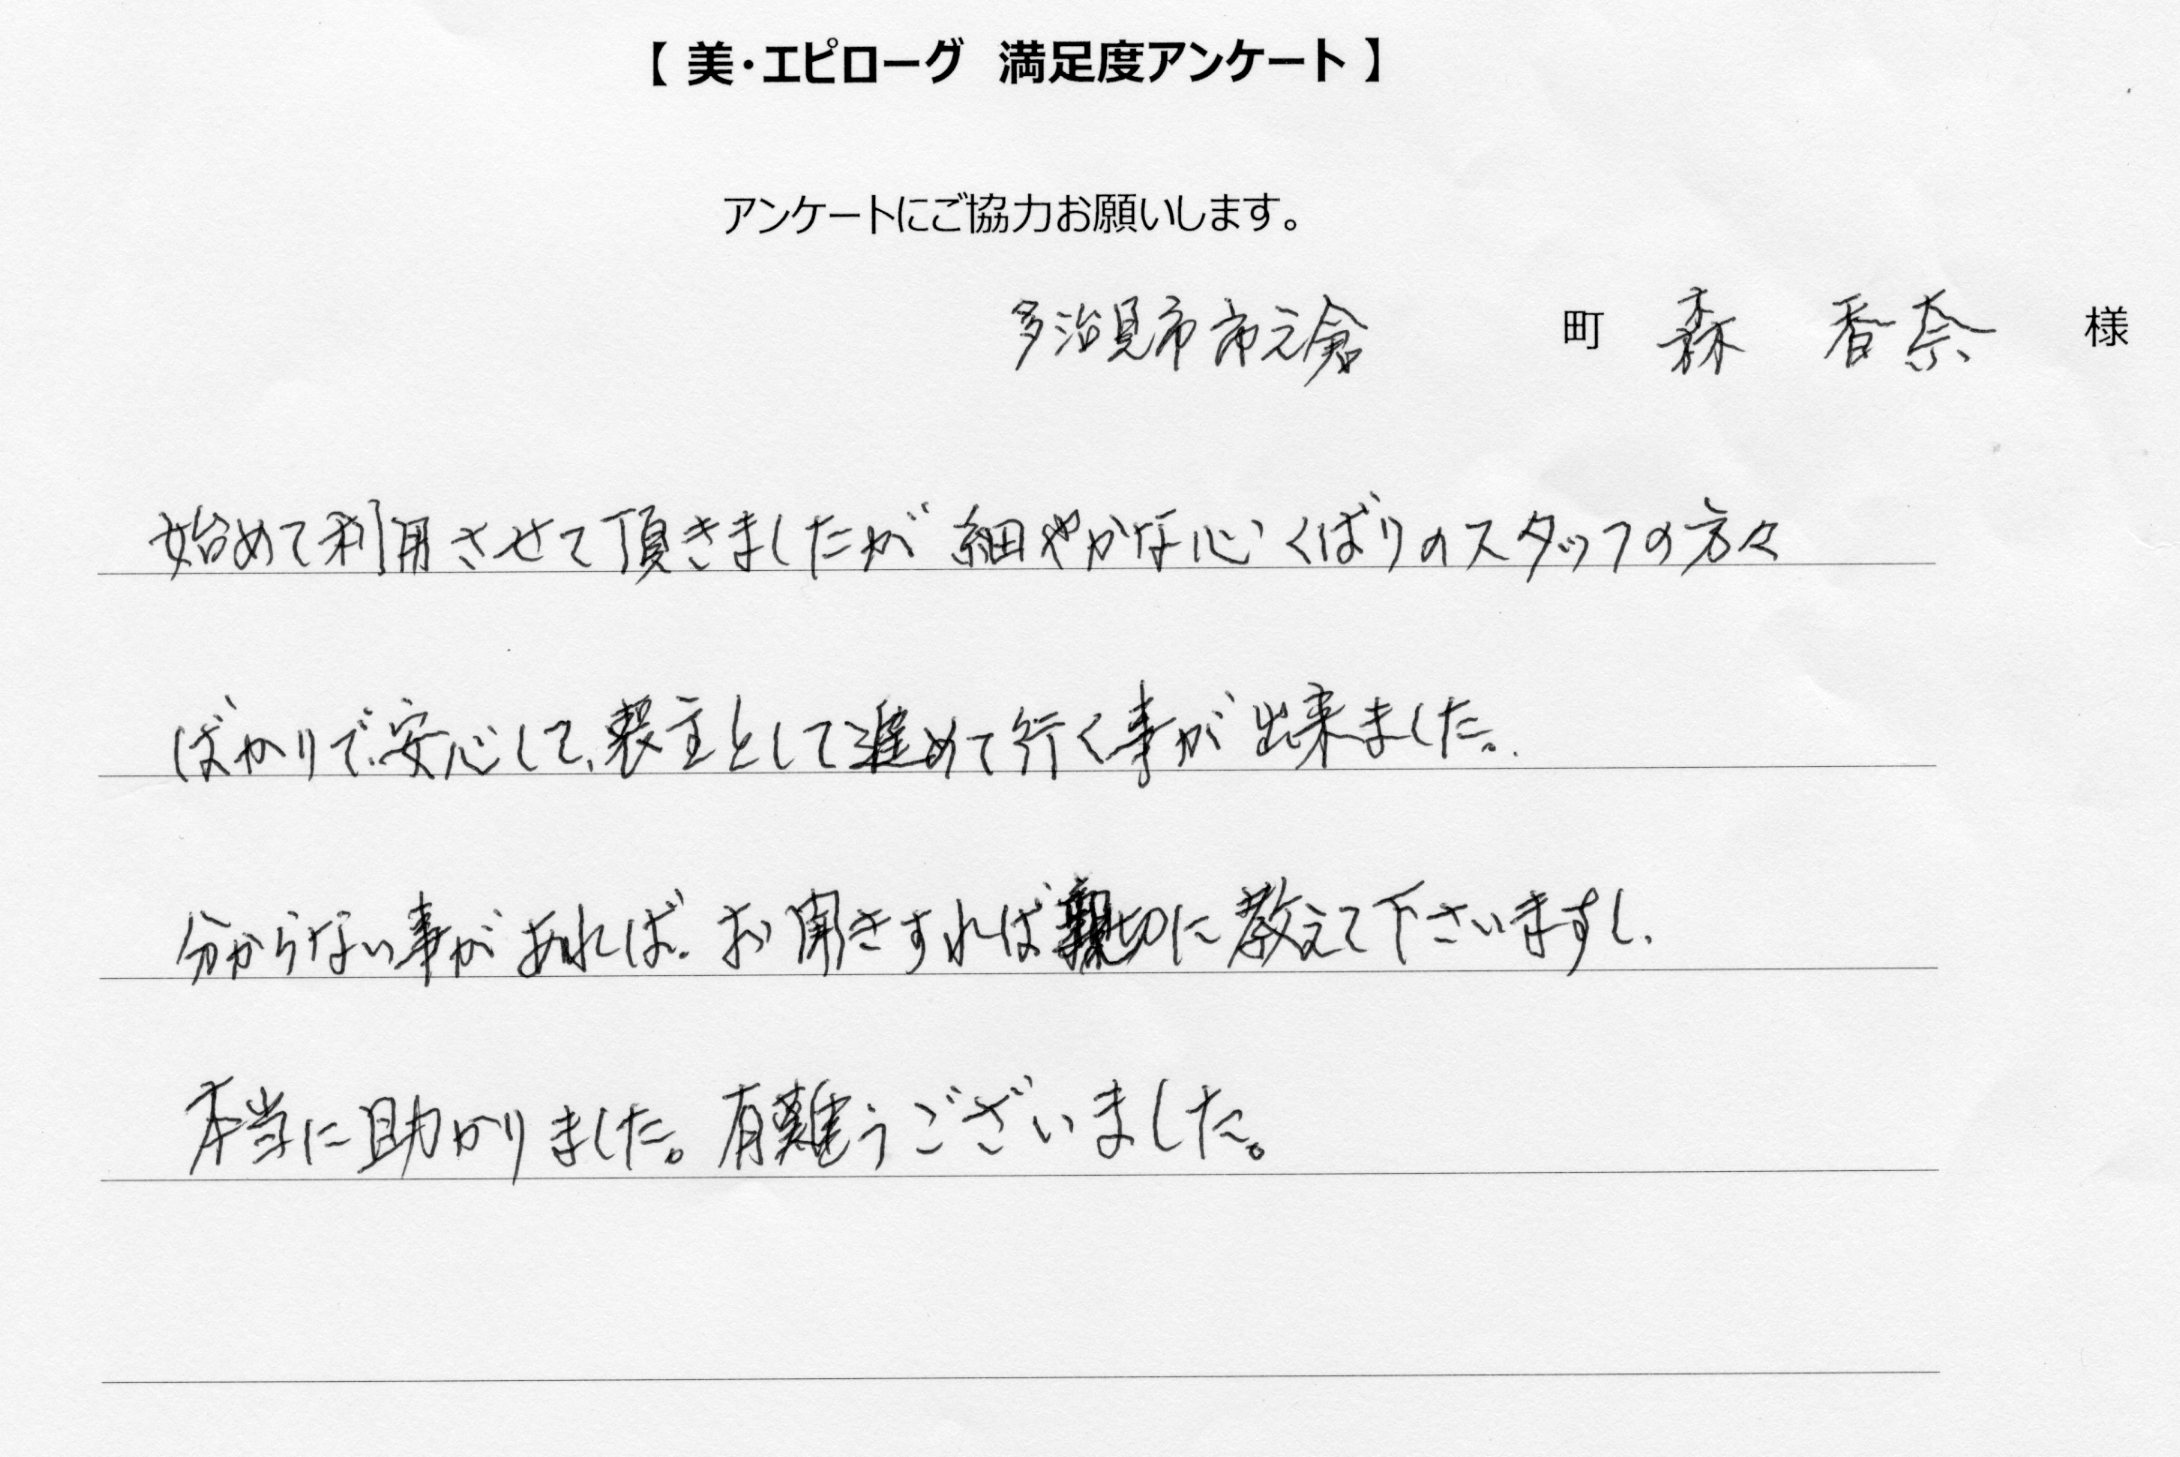 【 美・エピローグ 満足度アンケート 】
アンケートにご協力お願いします。
多治見市市之倉 町 森 香奈 様
始めて利用させて頂きましたが 細やかな心くばりのスタッフの方々
ばかりで、安心して、喪主として進めて行く事が出来ました。
分からない事があれば、お聞きすれば親切に教えて下さいますし、
本当に助かりました。有難うございました。